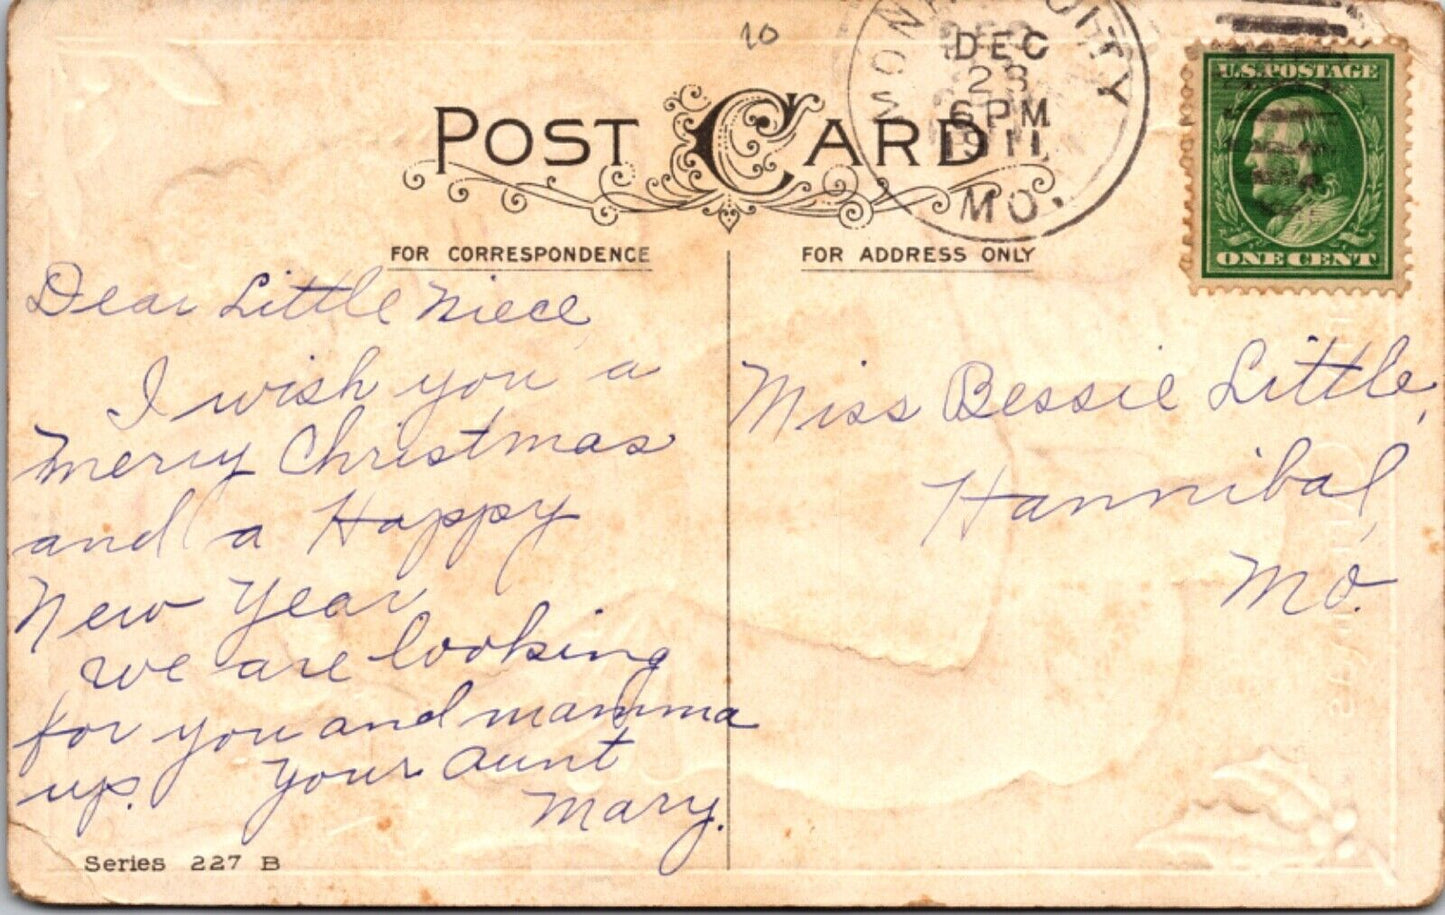 20
POST CARD
MONROE CITY
DEC
23
6 PM
1911
MO.
U.S. POSTAGE
ONE CENT
FOR CORRESPONDENCE
FOR ADDRESS ONLY
Dear Little Niece,
I wish you a
Merry Christmas
and a Happy
New Year
We are looking
for you and mamma
up. Your Aunt
Mary.
Miss Bessie Little,
Hannibal,
Mo.
Series 227 B